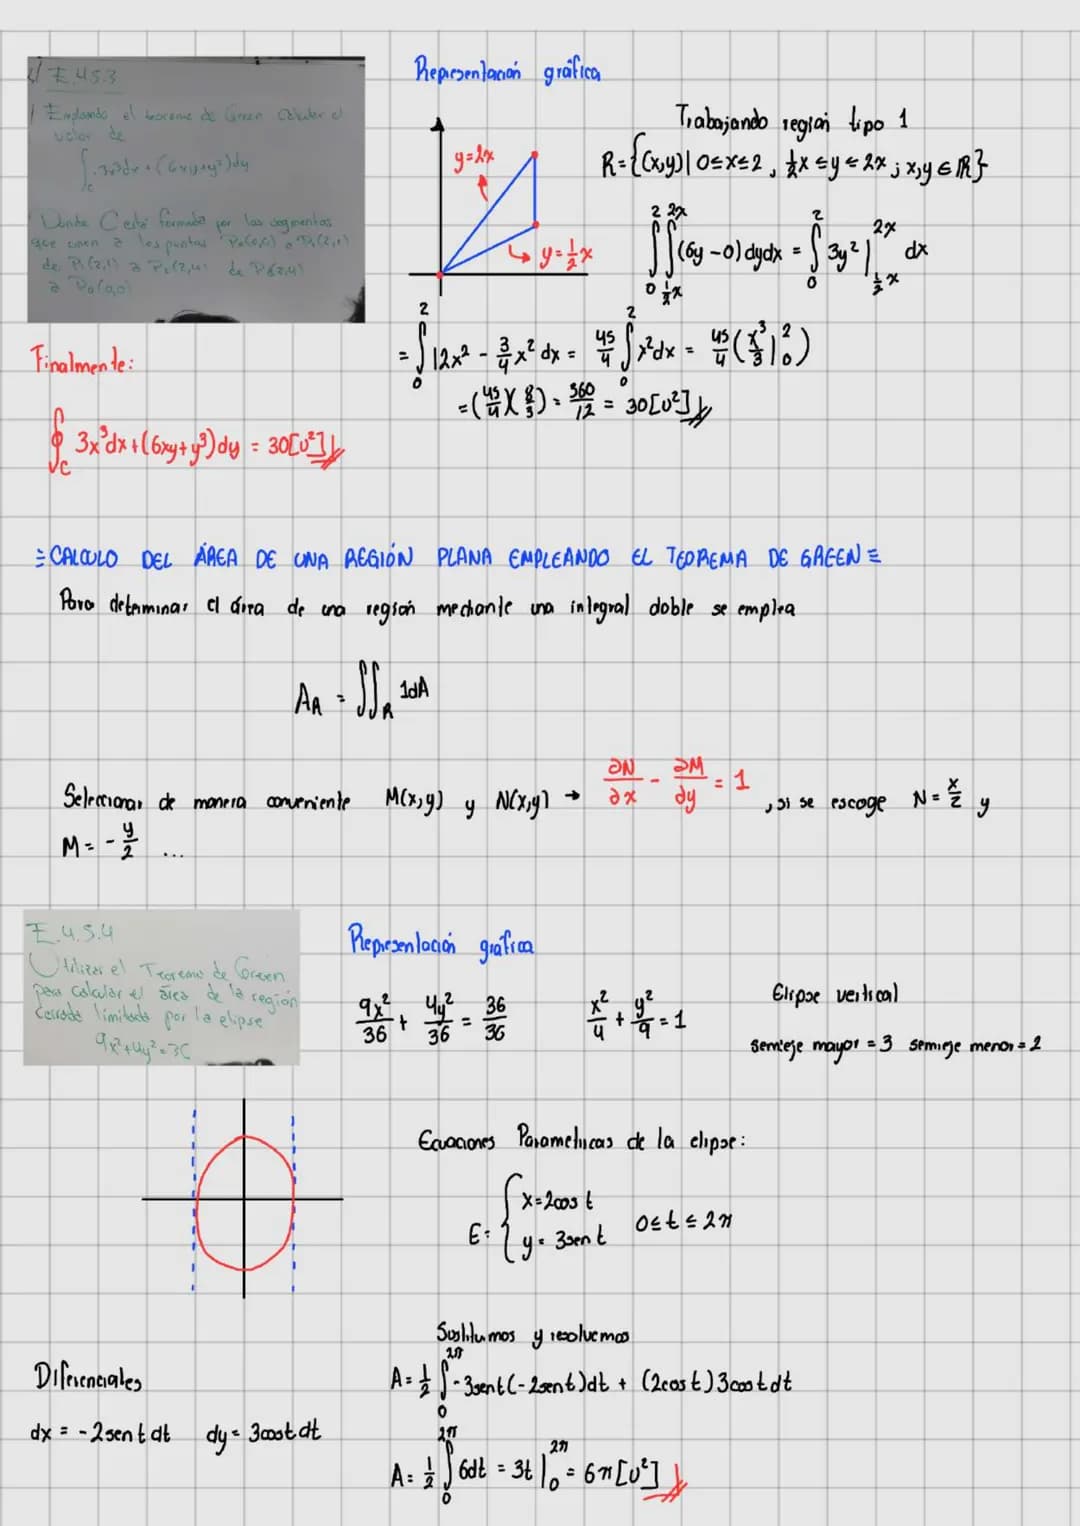 E.4.5.3
Empleando el teorema de Green calcular el
valor de
Donde C está formada por los segmentos
que unen a los puntos P₀(0,0) a P₁(2,1)
de P₁(2,1) a P₂(2,4) de P₂(2,4)
a P₀(0,0)
Representación gráfica
y=2x
y=½x
Trabajando región tipo 1
R={(x,y)| 0≤x≤2, ½x≤y≤2x ; x,y∈ℝ}
∫₀² ∫_{½x}^{2x} (6y-0)dydx = ∫₀² 3y² |_{½x}^{2x} dx
= ∫₀² 12x² - ¾x² dx = 45/4 ∫₀² x²dx = 45/4 (x³/3 |₀²)
=(45/4)(8/3) = 360/12 = 30[u²]
Finalmente:
∮_C 3x³dx+(6xy+y³)dy = 30[u²]
=CALCULO DEL ÁREA DE UNA REGIÓN PLANA EMPLEANDO EL TEOREMA DE GREEN=
Para determinar el área de una región mediante una integral doble se emplea
A_R = ∬_R 1dA
Seleccionar de manera conveniente M(x,y) y N(x,y) → ∂N/∂x - ∂M/∂y = 1 , si se escoge N = x/2 y
M = - y/2 ...
E.4.5.4
Utilizar el Teorema de Green
para calcular el área de la región
cerrada limitada por la elipse
9x²+4y²=36
Representación gráfica
9x²/36 + 4y²/36 = 36/36
x²/4 + y²/9 = 1
Elipse vertical
semieje mayor = 3 semieje menor = 2
Ecuaciones Parametricas de la elipse:
E: { x=2cos t
y = 3sen t
0≤t≤2π
Sustituimos y resolvemos
Diferenciales
dx = -2sen t dt dy = 3cost dt
A = ½ ∫₀^{2π} -3sent(-2sent)dt + (2cos t)3cos t dt
A = ½ ∫₀^{2π} 6dt = 3t |₀^{2π} = 6π[u²]